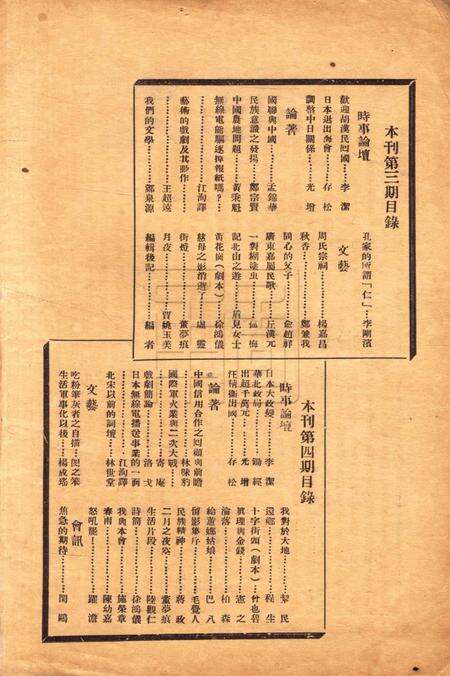 本刊第三期目錄
時事論壇
歡迎胡漢民回國……李潔
日本退出海會……存松
調整中日關係……光增
論著
國聯與中國……孟錦華
民族意識之發揚……鄭宗賢
中國農地問題……黃秉魁
無線電能驅逐掉報紙嗎?……
……江洵譯
藝術的戲劇及其動作……
……王超遠
我們的文學……鄭泉源
孔家的所謂「仁」……李剛濱
文藝
周氏宗祠……楊嘉昌
秋香……鄭兼我
同心的父子……詹趙祥
廣東嘉屬民歌……丘漢元
一對糊塗虫……
記北山之遊……眉兒女士
黃花崗(劇本)……徐鴻儀
慈母之影消逝了……盧靈
街燈……董夢痕
月夜……曾姚玉美
編輯後記……編者
本刊第四期目錄
時事論壇
日本大政變……李潔
華北政局……錫經
出超千萬元……光增
汪精衛出國……存松
論著
中國信用合作之回顧與前瞻
……林味豹
國際軍火業與二次大戰……
……寄庵
戲劇簡論……洛戈
日本無線電播送事業的一面
……江洵譯
北宋以前的詞壇……林世堂
文藝
吃粉筆灰者之自描……閔之笨
生活軍事化以後……楊成瑤
我對於大地……黎民
還鄉……程生
十字街頭(劇本)……什也碧
真理與金錢……憲之
淪落……柏森
給蕭娜姑娘……巴八
留影集序……毛覺人
民族精神……蔣政
二月之夜……董夢痕
生活片段……陸觀仁
詩簡……徐鴻儀
我與本會……施榮章
春雨……陳幼嘉
怒吼罷!……羅澹
會訊
焦急的期待……閔鷗